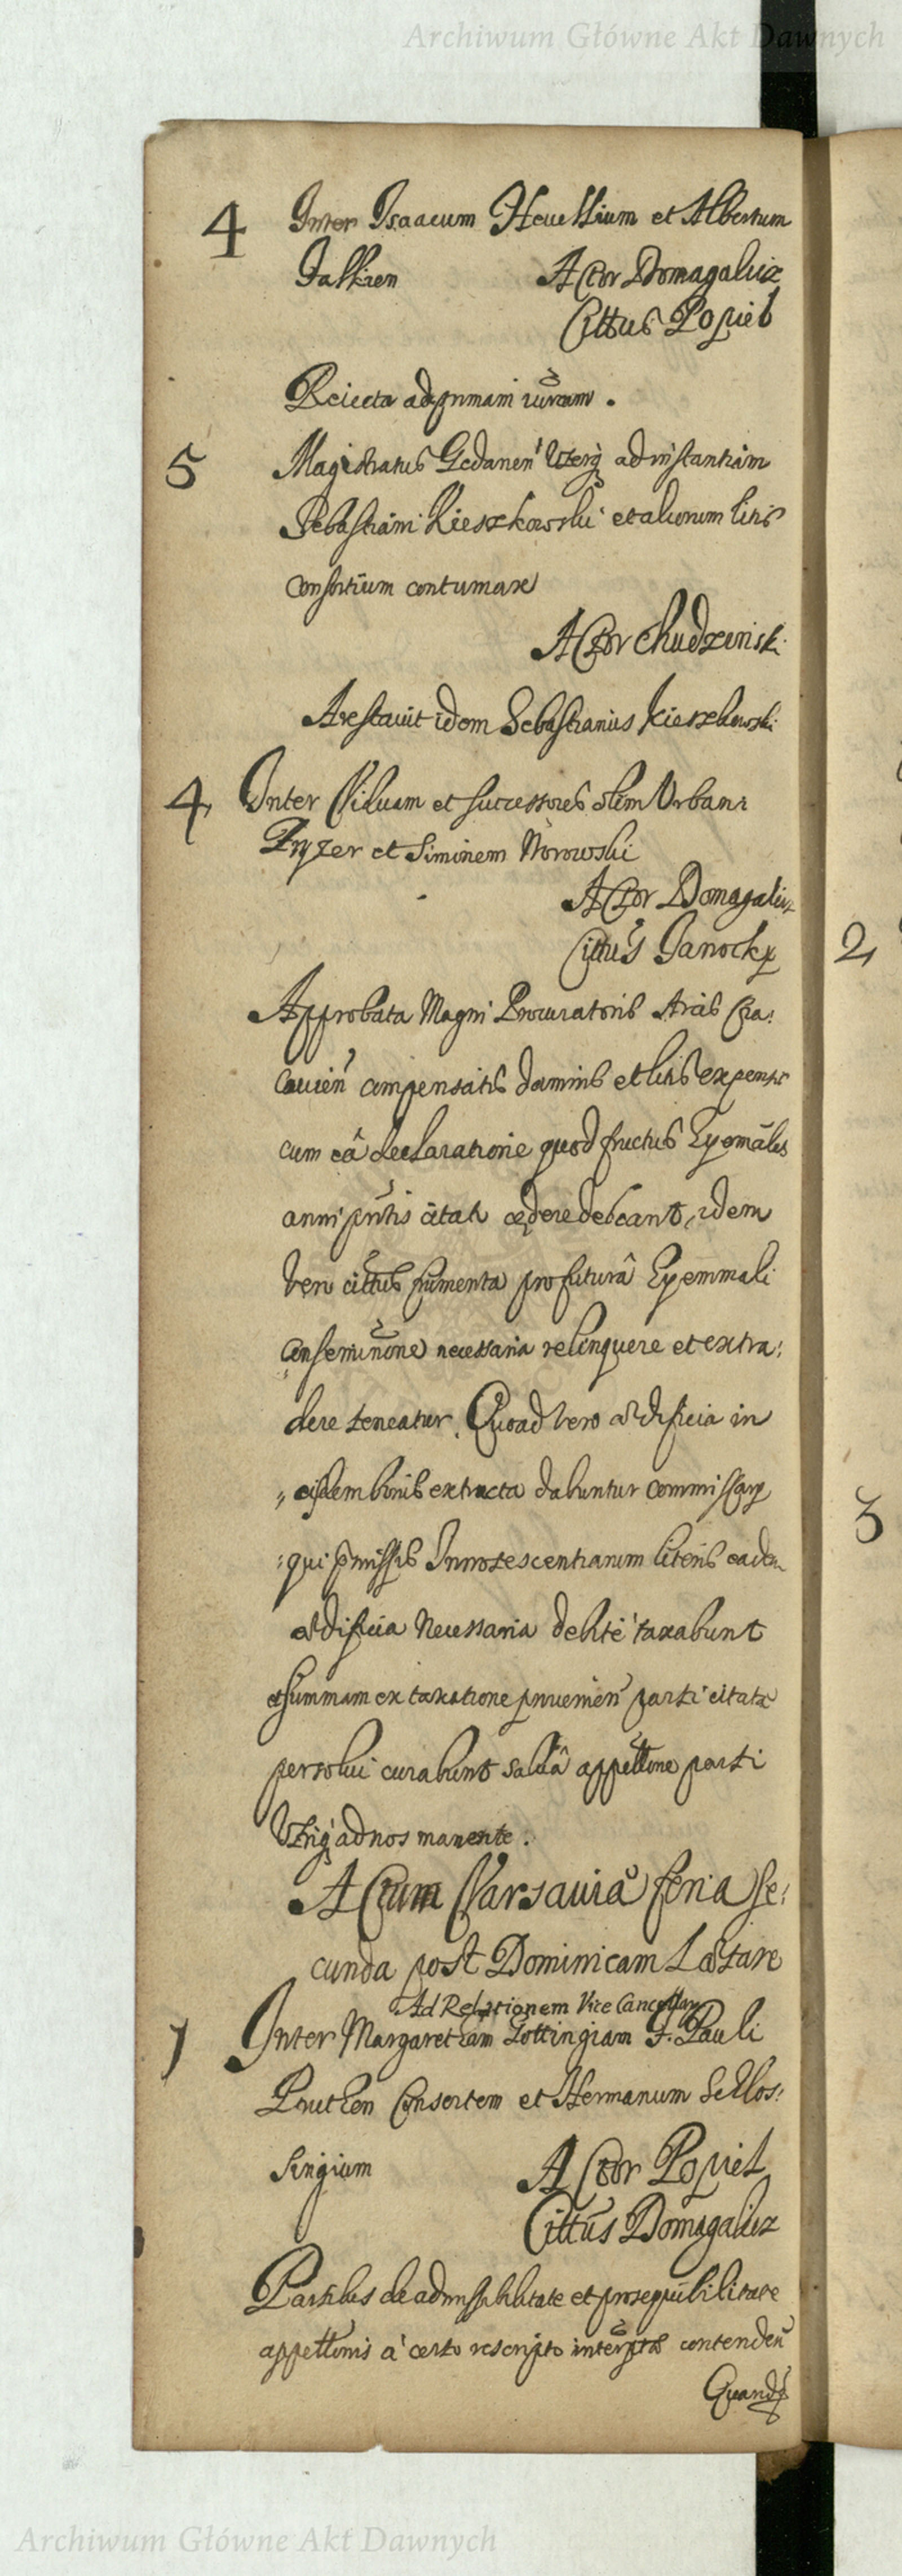 Archiwum Główne Akt Dawnych
4 Inter Isaacum Heuelium et Albertum
Actor Domagalicz
Cittus Popiel
Reiecta ad primam
5 Magistratus Gedanen' Utrinq ad instantiam
Sebastiani Kieszkowski et aliorum litis
consortium contumax
Actor Chudzenski
Arestauit idem Sebastianus Kieszkowski
4 Inter Viduam et successores olim Urbani
Pryzer et Simonem Norowski
Actor Domagalicz
Cittus Janocky
Approbata Magni Procuratoris Arcis Cra:
couien' compensatis damnis et litis expensis
cum eâ declaratione quod fructus Hyemales
anni pntis citat. cedere debeant, idem
vero cittus frumenta pro futurâ Hyemmali
conseminone necessaria relinquere et extra:
dere teneatur. Quoad vero ædificia in
eisdem bonis extructa dabuntur commissarij
qui præmissis Innotescentiarum literis eadem
ædificia Necessaria debite taxabunt
et summam ex taxatione prouenien' parti citatæ
persolui curabunt saluâ appellone parti
Utriq ad nos manente.
Actum Varsauiæ feria Se:
cunda post Dominicam Lætare
Ad Relationem Vice Cancellarij
1 Inter Margaretham Gottingiam F. Pauli
Pruthen Consortem et Hermanum Schlos:
singium Actor Popiel
Cittus Domagalicz
Partibus de admissibilitate et prosequibilitate
appellonis à certo rescripto interptæ contenden'
Quandoq
2
3
Archiwum Główne Akt Dawnych